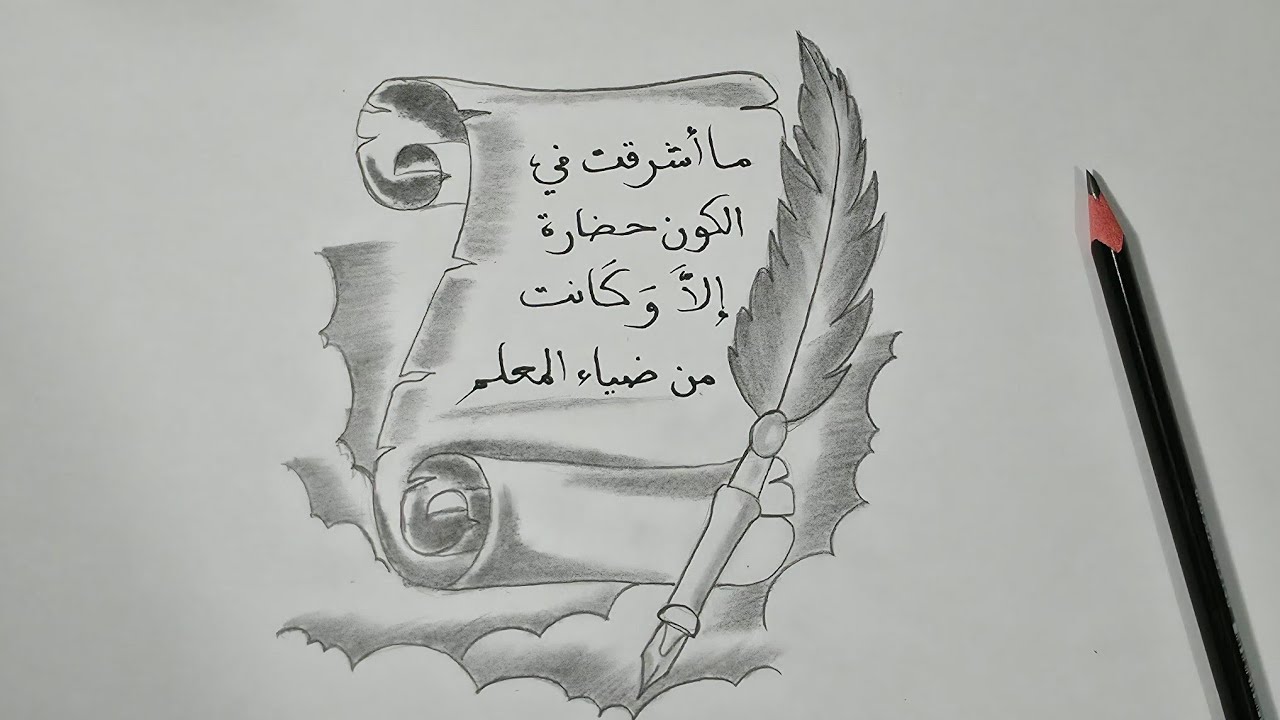 ما أشرقت في
الكون حضارة
إلاَّ وَكَانت
من ضياء المعلم